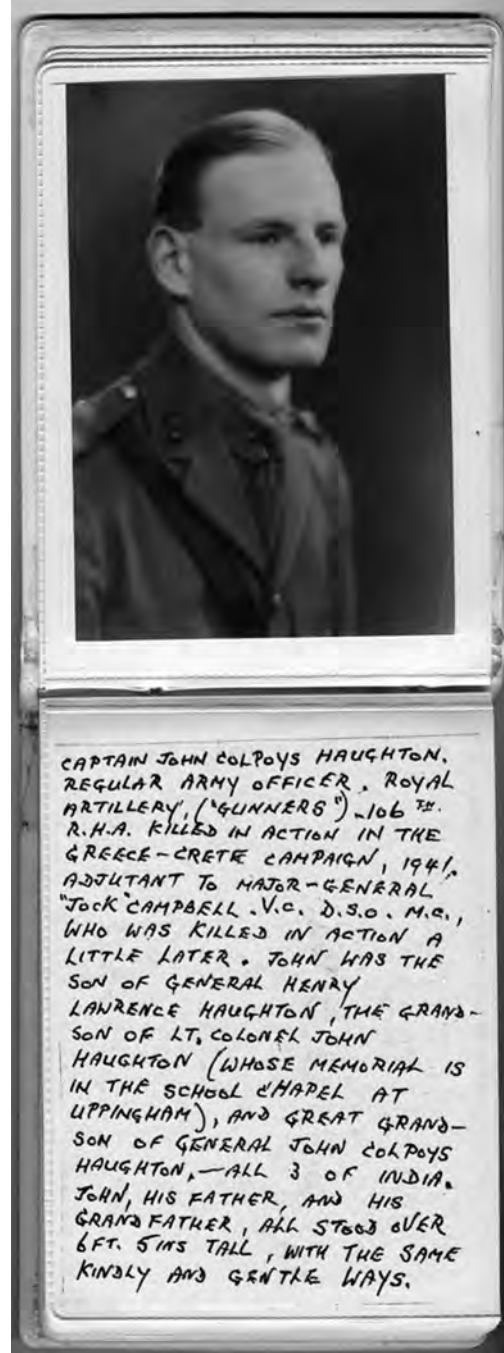 CAPTAIN JOHN COLPOYS HAUGHTON.
REGULAR ARMY OFFICER. ROYAL
ARTILLERY, ("GUNNERS")-106TH.
R.H.A. KILLED IN ACTION IN THE
GREECE-CRETE CAMPAIGN, 1941.
ADJUTANT TO MAJOR-GENERAL
"JOCK" CAMPBELL. V.C. D.S.O. M.C.,
WHO WAS KILLED IN ACTION A
LITTLE LATER. JOHN WAS THE
SON OF GENERAL HENRY
LAWRENCE HAUGHTON, THE GRAND-
SON OF LT. COLONEL JOHN
HAUGHTON (WHOSE MEMORIAL IS
IN THE SCHOOL CHAPEL AT
UPPINGHAM), AND GREAT GRAND-
SON OF GENERAL JOHN COLPOYS
HAUGHTON,—ALL 3 OF INDIA.
JOHN, HIS FATHER, AND HIS
GRANDFATHER, ALL STOOD OVER
6FT. 5INS TALL, WITH THE SAME
KINDLY AND GENTLE WAYS.